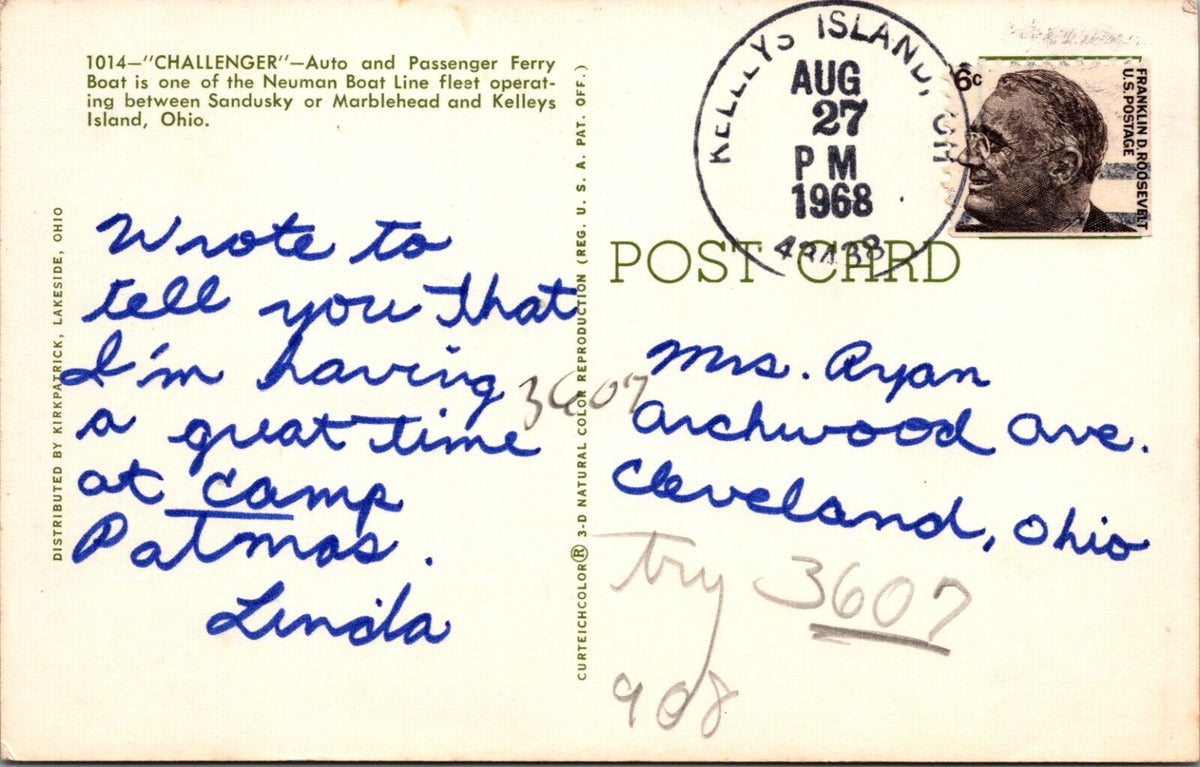 1014—"CHALLENGER"—Auto and Passenger Ferry
Boat is one of the Neuman Boat Line fleet operat-
ing between Sandusky or Marblehead and Kelleys
Island, Ohio.
DISTRIBUTED BY KIRKPATRICK, LAKESIDE, OHIO
Wrote to
tell you that
I'm having
a great time
at camp
Patmos.
Linda
CURTEICHCOLOR® 3-D NATURAL COLOR REPRODUCTION (REG. U. S. A. PAT. OFF.)
KELLEYS ISLAND, OH
AUG
27
PM
1968
6c
FRANKLIN D. ROOSEVELT
U.S. POSTAGE
POST CARD
Mrs. Ryan
3607 Archwood Ave.
Cleveland, Ohio
try 3607
908